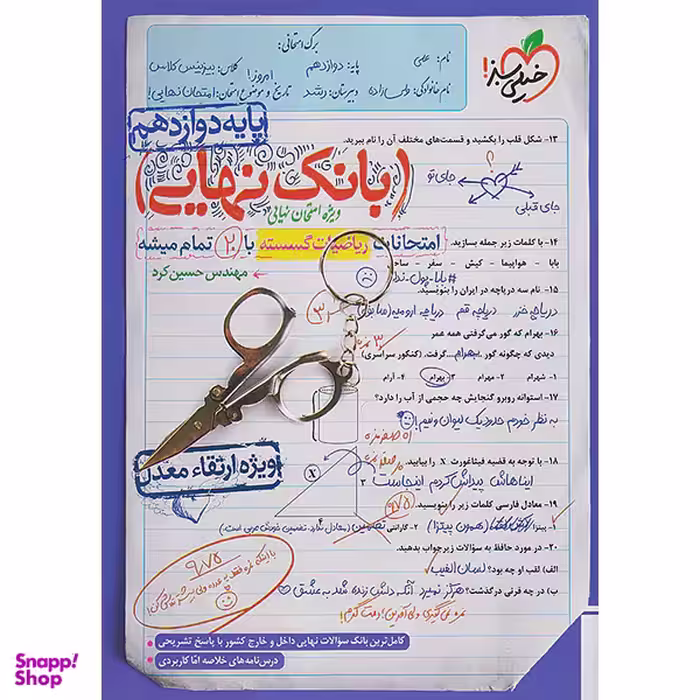 خیلی سبز!
برگ امتحانی:
نام: علمی
پایه: دوازدهم
کلاس: بیزینس کلاس
نام خانوادگی: والی‌زاده
دبیرستان: رشد
امروز!
تاریخ و موضوع امتحان: امتحان نهایی!
پایه دوازدهم
(بانک نهایی)
ویژه امتحان نهایی
امتحانات ریاضیات گسسته با ۲۰ تمام میشه
مهندس حسین کرد
۱۳- شکل قلب را بکشید و قسمت‌های مختلف آن را نام ببرید.
؟
جای تو
جای قبلی
۱۴- با کلمات زیر جمله بسازید.
بابا - هواپیما - کیش - سفر - ساحل
#بابا_پول_نداد
۱۵- نام سه دریاچه در ایران را بنویسید.
دریاچه خزر دریاچه قم دریاچه ارومیه (سابقاً)
۳
۱۶- بهرام که گور می‌گرفتی همه عمر
دیدی که چگونه گور بهرام گرفت. (کنکور سراسری)
۱- شهرام ۲- مهرام ۳- بهرام ۴- آرام
۱۷- استوانه روبرو گنجایش چه حجمی از آب را دارد؟
به نظر خودم حدود یک لیوان و نیم!
۱۸- با توجه به قضیه فیثاغورث X را بیابید.
X
ایناهاش پیداش کردم اینجاست
۳
ویژه ارتقاء معدل
۱۹- معادل فارسی کلمات زیر را بنویسید.
۱- پیتزا (همون پیتزا) ۲- گارانتی تضمین (معادل ندارد. تضمین خودش عربی است.)
۲۰- در مورد حافظ به سؤالات زیر جواب بدهید.
الف) لقب او چه بود؟ لسان الغیب
ب) در چه قرنی درگذشت؟ هرگز نمیرد آنکه دلش زنده شد به عشق
نمره نمی‌گیری ولی آفرین! دمت گرم!
۹/۷۵
کامل‌ترین بانک سوالات نهایی داخل و خارج کشور با پاسخ تشریحی
درس‌نامه‌های خلاصه اما کاربردی
Snapp!
Shop